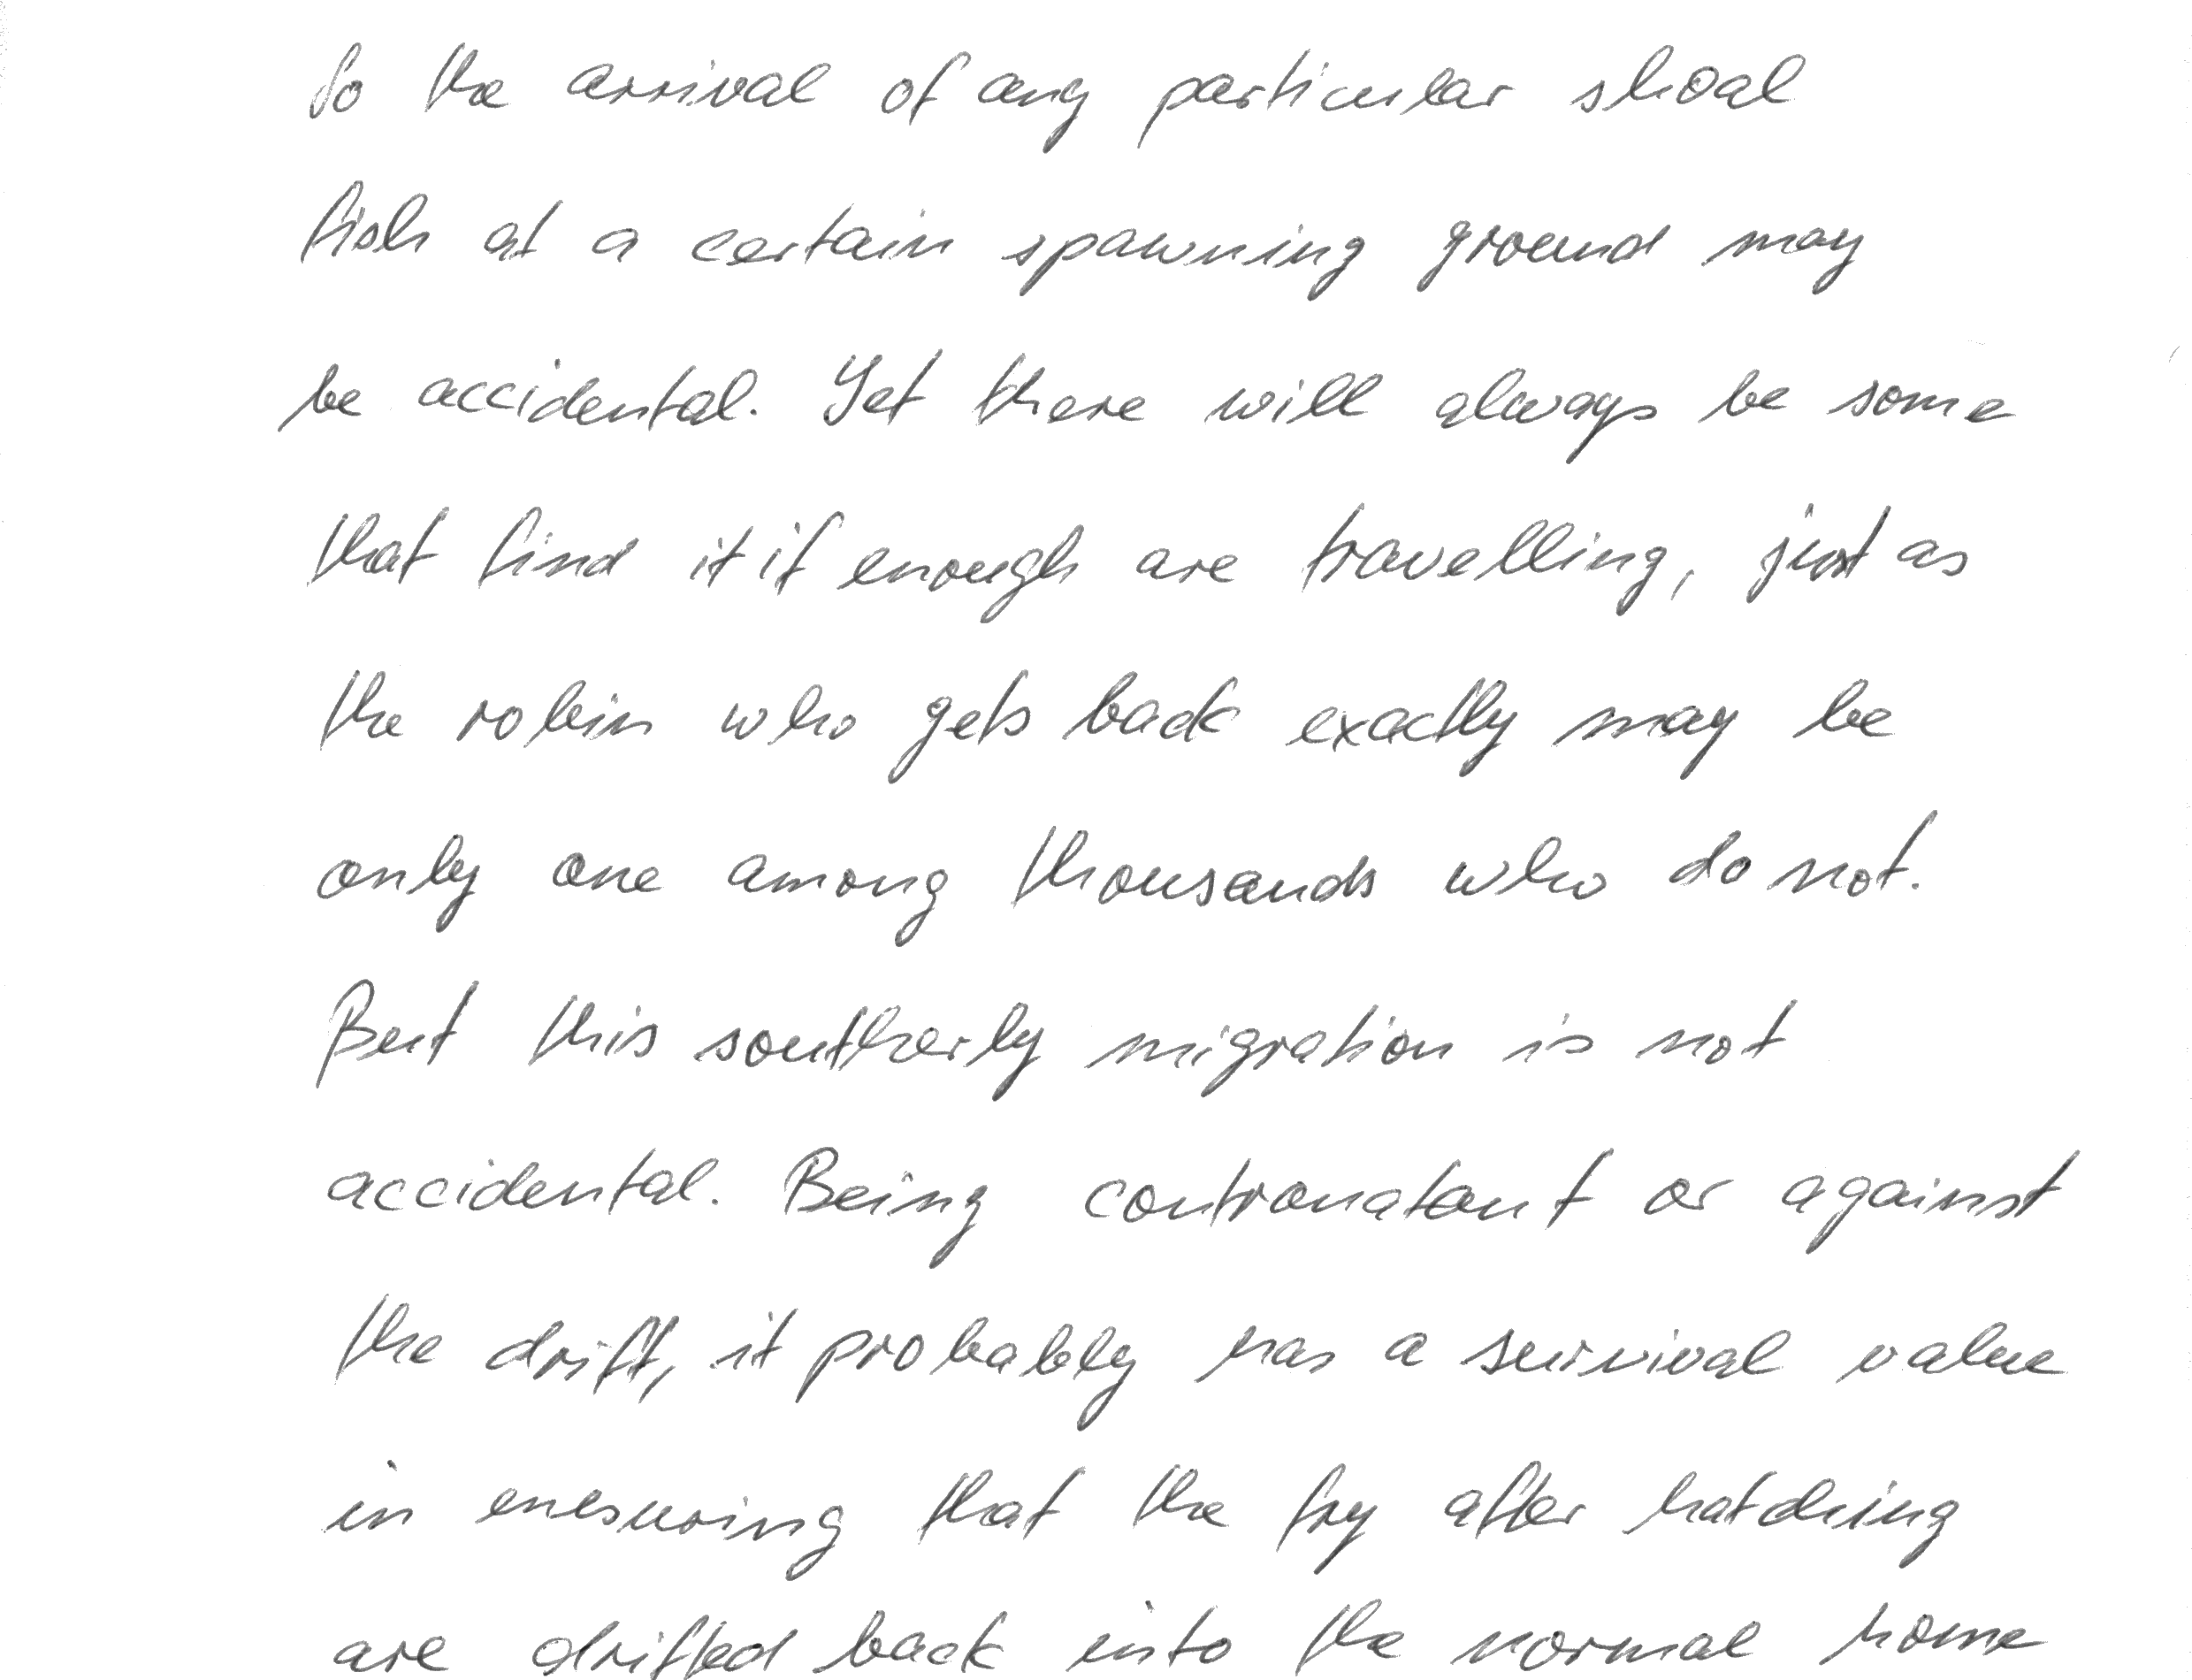 So the arrival of any particular shoal
fish at a certain spawning ground may
be accidental. Yet there will always be some
that find it if enough are travelling, just as
the robin who gets back exactly may be
only one among thousands who do not.
But this southerly migration is not
accidental. Being contranatant or against
the drift, it probably has a survival value
in enesuring that the fry after hatching
are drifted back into the normal home